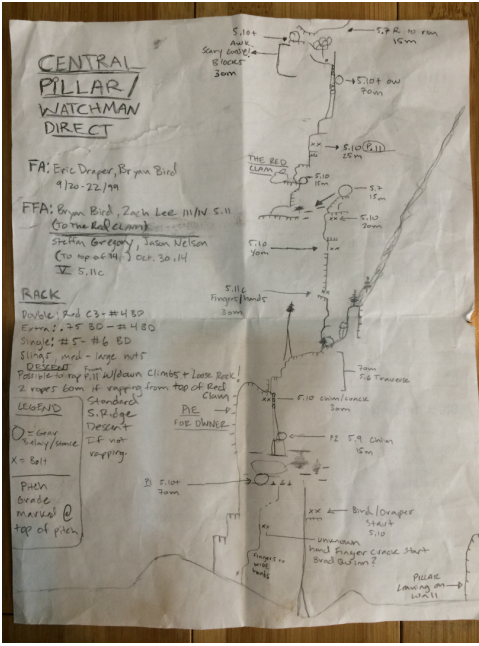 CENTRAL
PILLAR/
WATCHMAN
DIRECT
FA: Eric Draper, Bryan Bird
9/20-22/99
FFA: Bryan Bird, Zach Lee III/IV 5.11
(To the Red Clam)
Steffan Gregory, Jason Nelson
(To top of P4,) Oct. 30, 14
V 5.11c
RACK
Double; Red C3 - #4 BD
Extra: .75 BD - #4 BD
Single: #5 - #6 BD
Slings, med - large nuts
DESCENT
Possible to rap P.11 w/down climbs + Loose Rock!
2 ropes 60m if rapping from top of Red
Clam
Standard
S. Ridge
Descent
If not
rapping.
LEGEND
O = Gear
Belay/stance
X = Bolt
Pitch
Grade
marked @
top of pitch
5.10+
Awk.
Scary Loose!
Blocks
30m
5.7 R to rim
15m
5.10+ OW
70m
5.10 (P.11)
25m
THE RED
CLAM
5.10
15m
5.7
15m
5.10
20m
5.10
40m
5.11c
Fingers/hands
30m
70m
5.6 Traverse
5.10 chim/crack
30m
PIE →
FOR OWNER
P2 5.9 Chim
15m
5.10+
70m
XX ← Bird/Draper
Start
5.10
unknown
hand finger crack start
Brad Quinn?
Fingers to
wide
hands
PILLAR
Leaning on
Wall